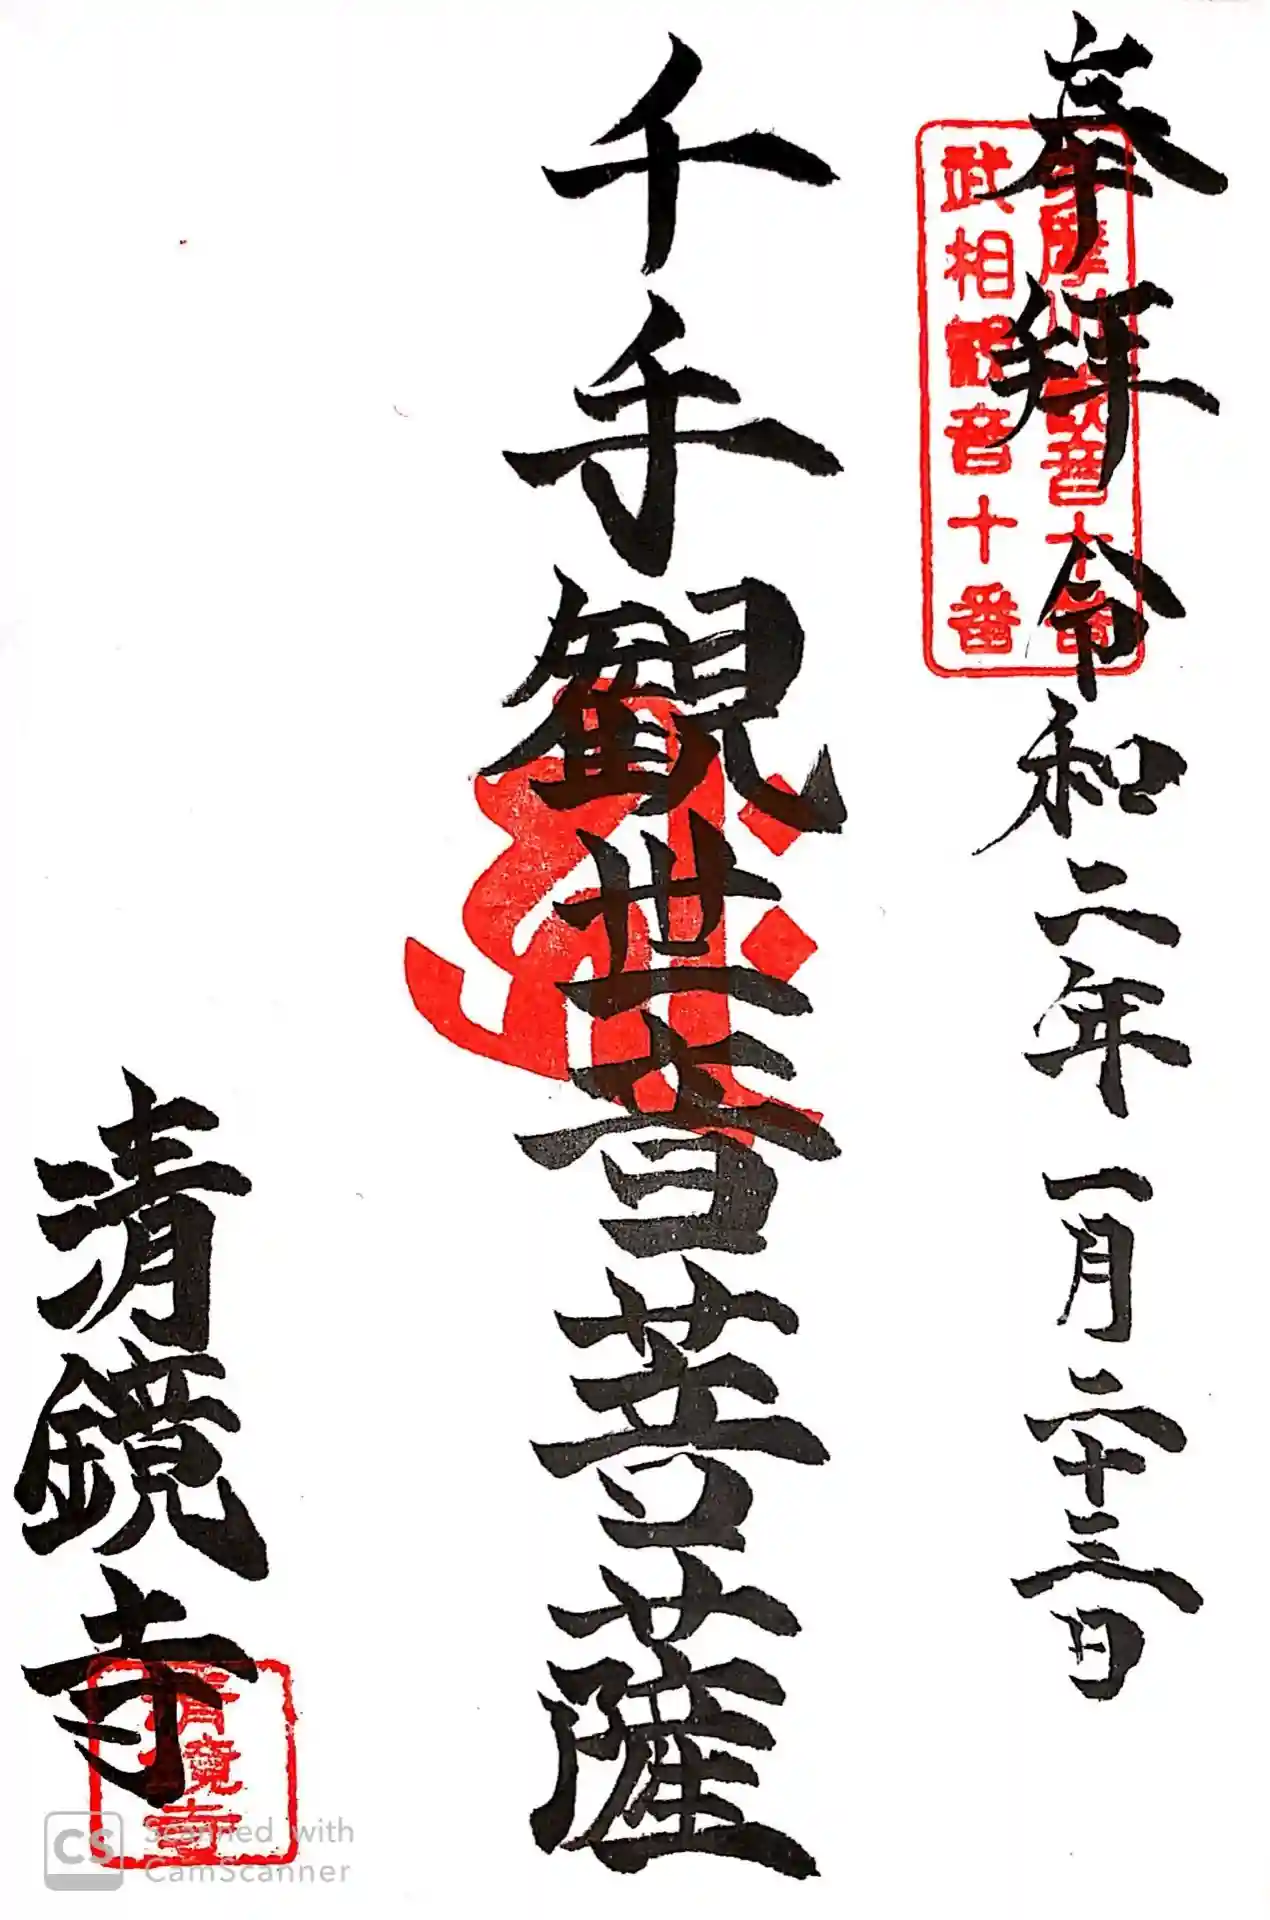 奉拝 令和二年 一月二十三日
多摩川観音十番
武相観音十番
千手観世音菩薩
清鏡寺
清鏡寺
CS Scanned with
CamScanner